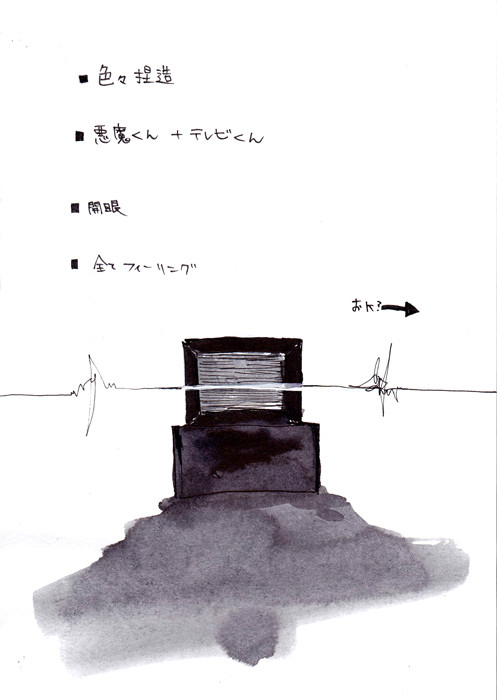 ■ 色々捏造
■ 悪魔くん + テレビくん
■ 開眼
■ 全てフィーリング
おK?